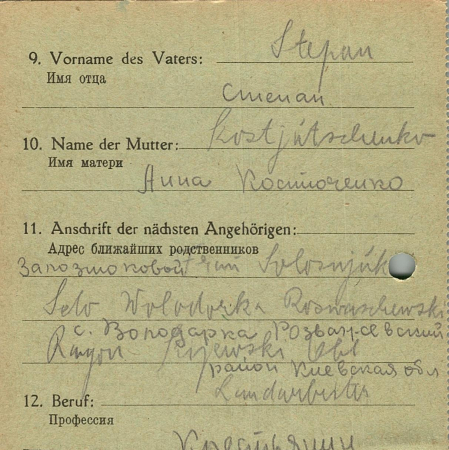 9. Vorname des Vaters: Stepan
Имя отца
Степан
10. Name der Mutter: Kostjutschenko
Имя матери
Анна Костюченко
11. Anschrift der nächsten Angehörigen:
Адрес ближайших родственников
Selo Wolodorka Roswaschewski
с. Володарка Розважевский
Rayon Kijewski Obl
район Киевская обл
Landarbeiter
12. Beruf:
Профессия
Крестьянин